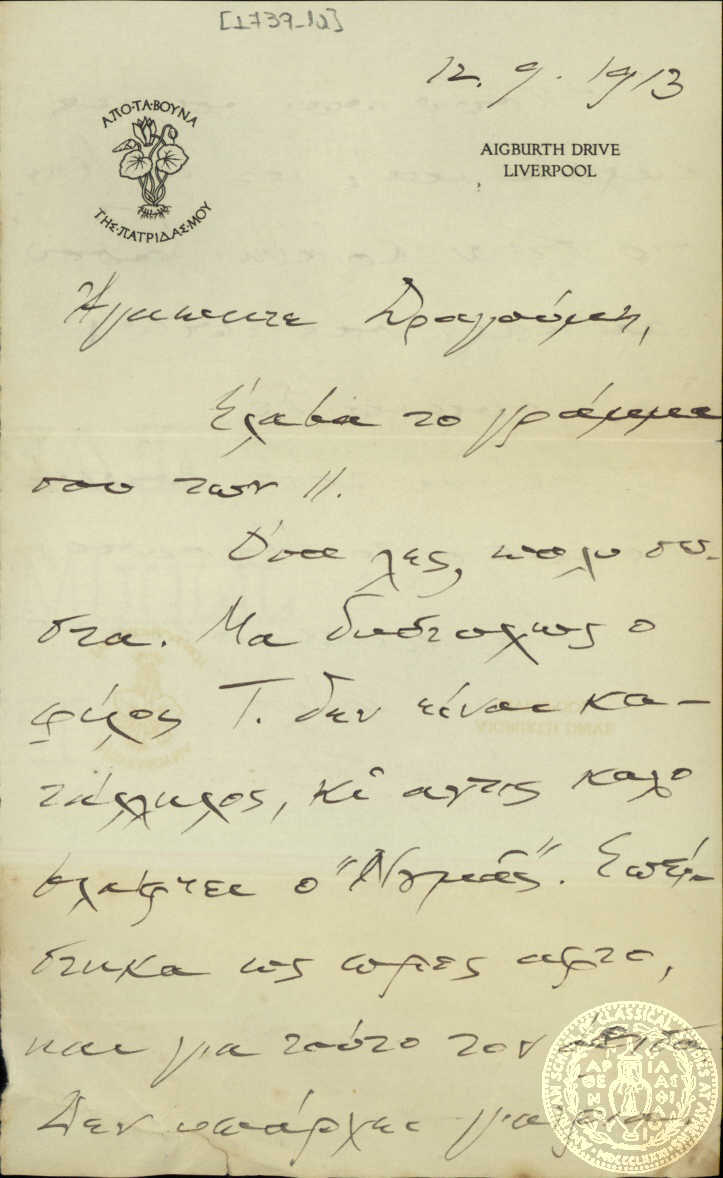 [1739_1a]
12. 9. 1913
ΑΠΟ·ΤΑ·ΒΟΥΝΑ
ΤΗΣ·ΠΑΤΡΙΔΑΣ·ΜΟΥ
AIGBURTH DRIVE
LIVERPOOL
Αγαπητε Δραγούμη,
Έλαβα το γράμμα
σου των 11.
Όσα λες, πολυ σω-
στα. Μα δυστυχως ο
φίλος Τ. δεν είναι κα-
τάλληλος, κι αντις καλο
βλάφτει ο "Νυμάς". Επεί-
στηκα ως αφτο,
και για τούτο τον
Δεν υπάρχει